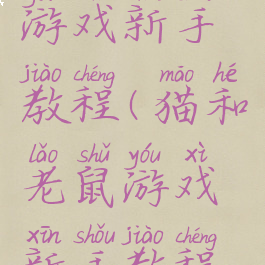 游戏新手
jiào chéng māo hé
教程(猫和
lǎo shǔ yóu xì
老鼠游戏
xīn shǒu jiào chéng
新手教程